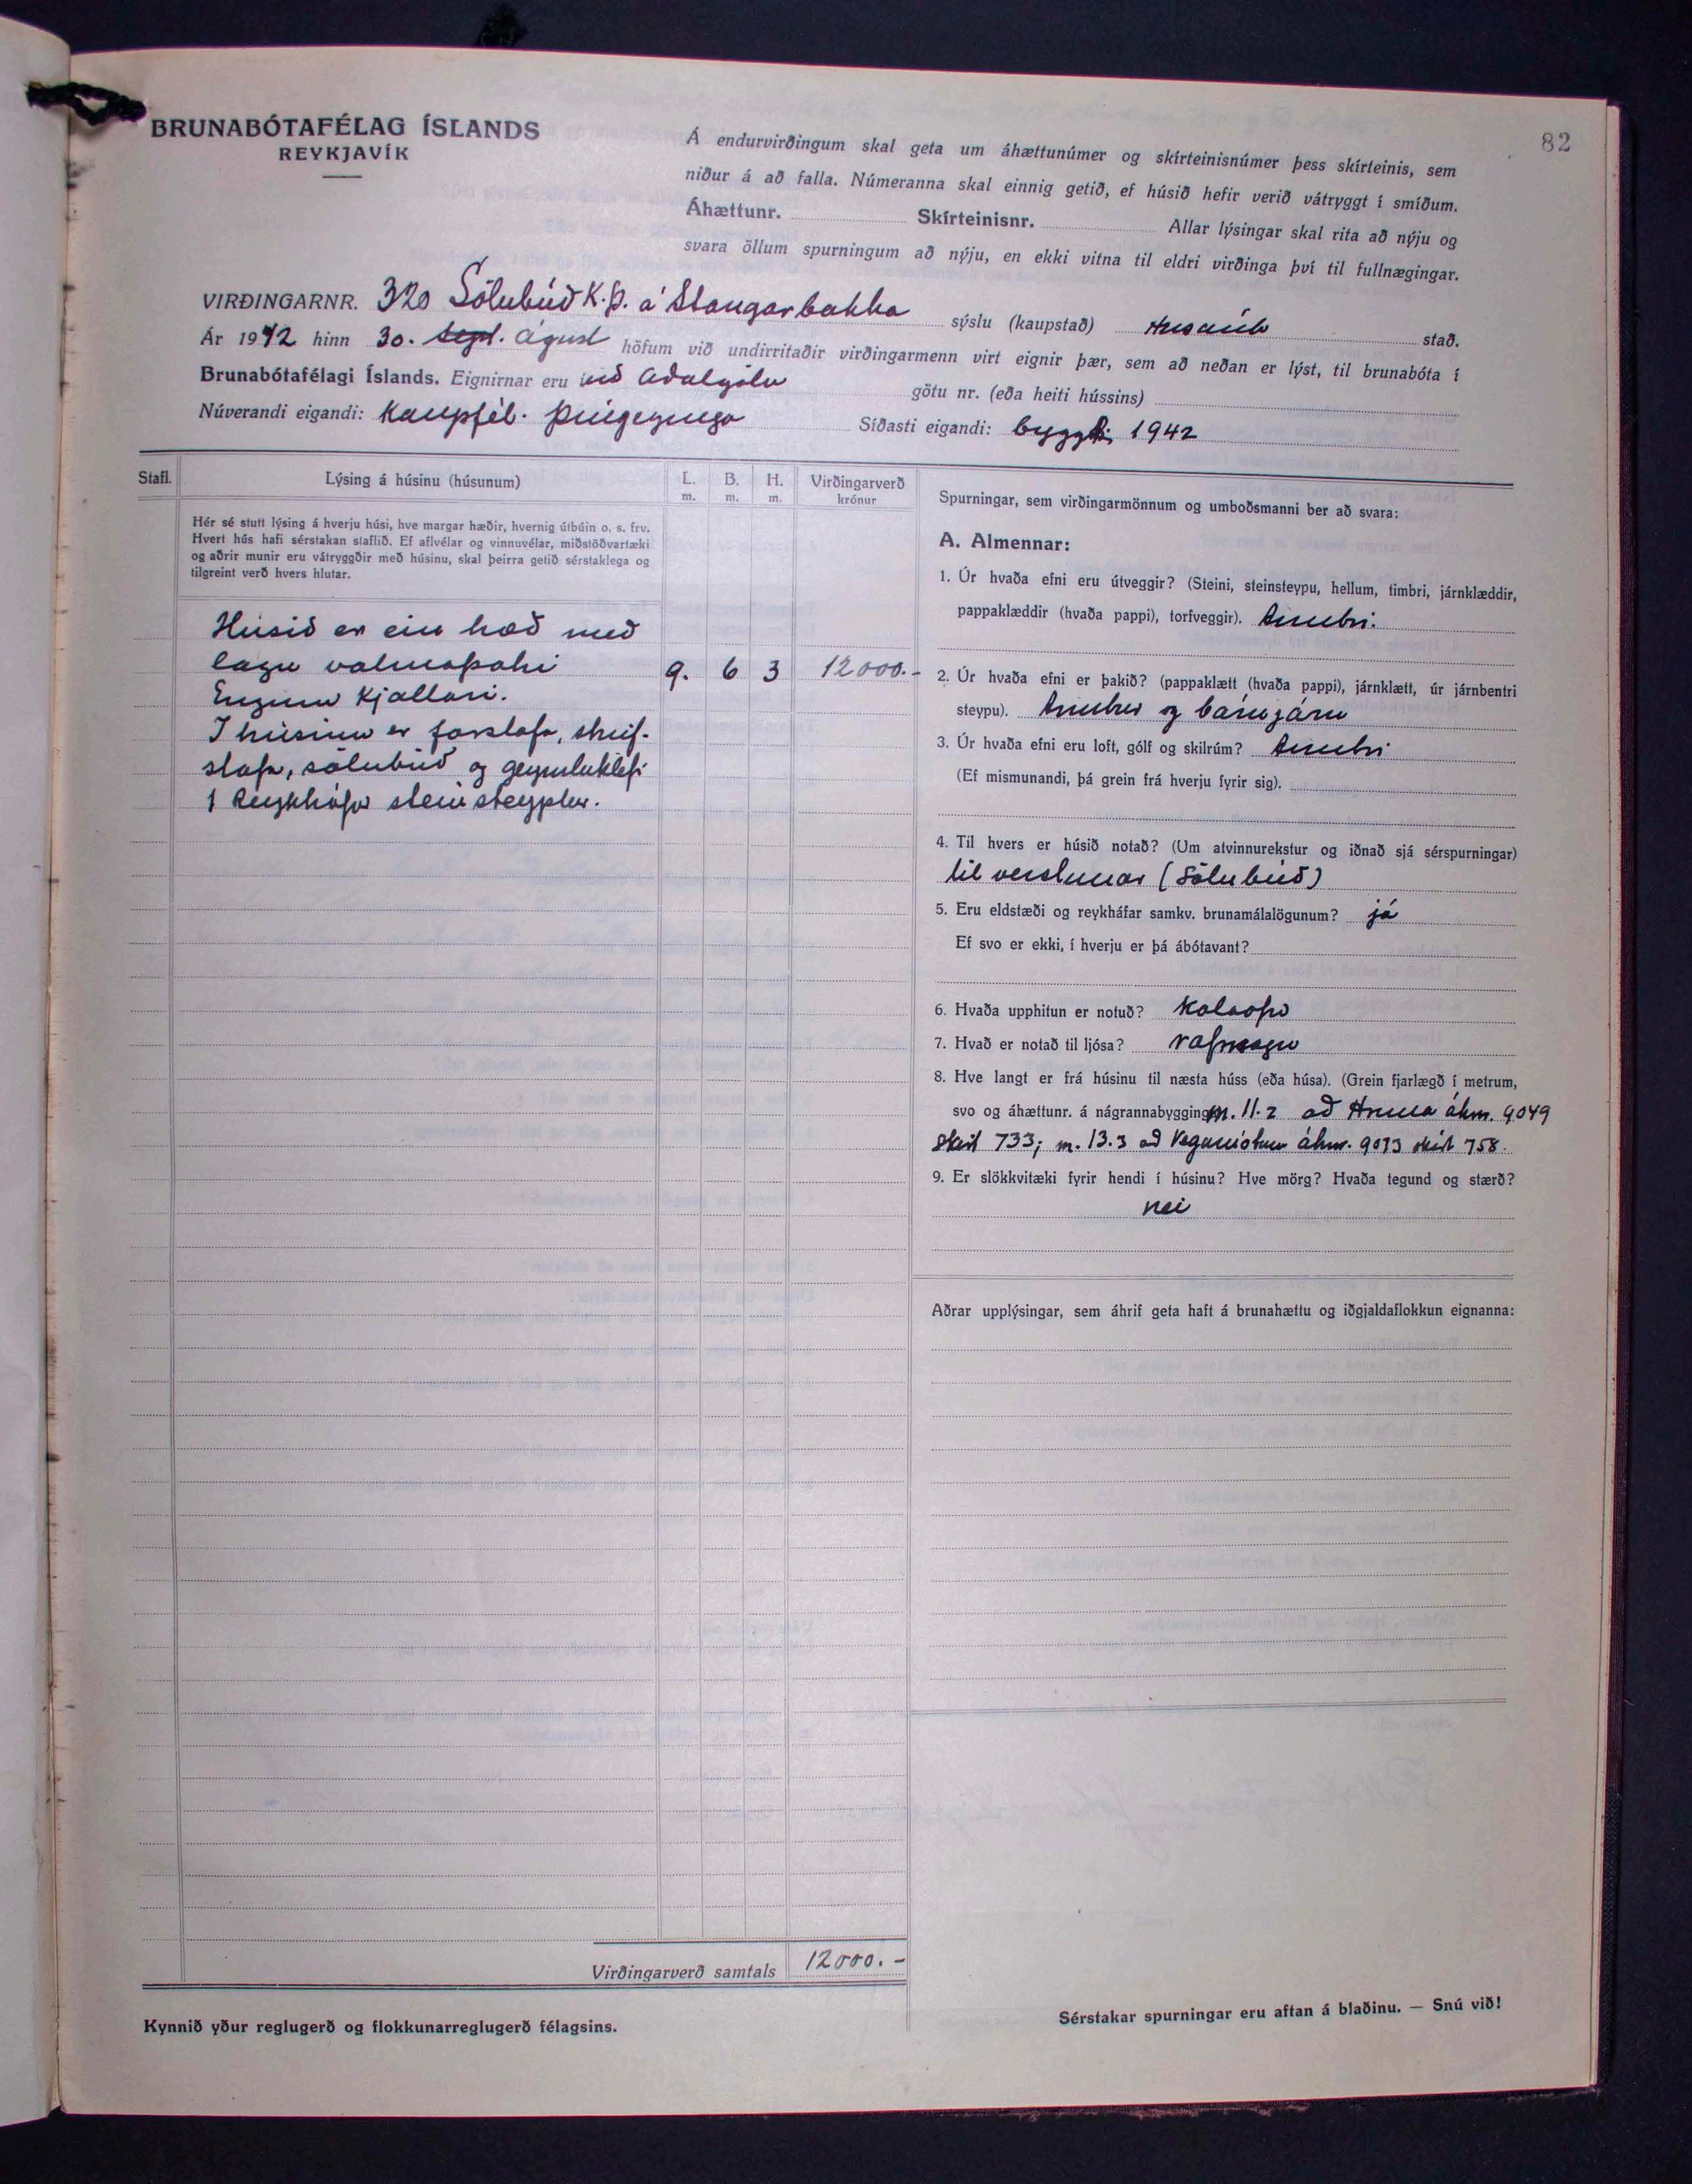 82
BRUNABÓTAFÉLAG ÍSLANDS
REYKJAVÍK
Á endurvirðingum skal geta um áhættunúmer og skírteinisnúmer þess skírteinis, sem
niður á að falla. Númeranna skal einnig getið, ef húsið hefir verið vátryggt í smíðum.
Áhættunr. Skírteinisnr. Allar lýsingar skal rita að nýju og
svara öllum spurningum að nýju, en ekki vitna til eldri virðinga því til fullnægingar.
VIRÐINGARNR. 320 Sölubúð K.Þ. á Stangarbakka sýslu (kaupstað) Húsavík stað.
Ár 1942 hinn 30. Sept. Ágúst höfum við undirritaðir virðingarmenn virt eignir þær, sem að neðan er lýst, til brunabóta í
Brunabótafélagi Íslands. Eignirnar eru við Aðalgötu götu nr. (eða heiti hússins)
Núverandi eigandi: Kaupfél. Þingeyinga Síðasti eigandi: byggt 1942
Stafl. Lýsing á húsinu (húsunum) L. m. B. m. H. m. Virðingarverð krónur
Hér sé stutt lýsing á hverju húsi, hve margar hæðir, hvernig útbúin o. s. frv.
Hvert hús hafi sérstakan staflið. Ef aflvélar og vinnuvélar, miðstöðvartæki
og aðrir munir eru vátryggðir með húsinu, skal þeirra getið sérstaklega og
tilgreint verð hvers hlutar.
Húsið er ein hæð með
lágu valmaþaki 9. 6 3 12000.-
Enginn Kjallari.
Í húsinu er forstofa, skrif-
stofa, sölubúð og geymsluklefi
1 Reykháfur steinsteyptur.
Virðingarverð samtals 12000.-
Kynnið yður reglugerð og flokkunarreglugerð félagsins.
Spurningar, sem virðingarmönnum og umboðsmanni ber að svara:
A. Almennar:
1. Úr hvaða efni eru útveggir? (Steini, steinsteypu, hellum, timbri, járnklæddir,
pappaklæddir (hvaða pappi), torfveggir). timbri.
2. Úr hvaða efni er þakið? (pappaklætt (hvaða pappi), járnklætt, úr járnbentri
steypu). timbri og bárujárni
3. Úr hvaða efni eru loft, gólf og skilrúm? timbri
(Ef mismunandi, þá grein frá hverju fyrir sig).
4. Til hvers er húsið notað? (Um atvinnurekstur og iðnað sjá sérspurningar)
til verslunar (Sölubúð)
5. Eru eldstæði og reykháfar samkv. brunamálalögunum? já
Ef svo er ekki, í hverju er þá ábótavant?
6. Hvaða upphitun er notuð? Kolaofn
7. Hvað er notað til ljósa? rafmagn
8. Hve langt er frá húsinu til næsta húss (eða húsa). (Grein fjarlægð í metrum,
svo og áhættunr. á nágrannabygging m. 11.2 að áhnr. 9049
skirt 733; m. 13.3 að Vegamótum áhnr. 9013 skirt 758.
9. Er slökkvitæki fyrir hendi í húsinu? Hve mörg? Hvaða tegund og stærð?
nei
Aðrar upplýsingar, sem áhrif geta haft á brunahættu og iðgjaldaflokkun eignanna:
Sérstakar spurningar eru aftan á blaðinu. — Snú við!